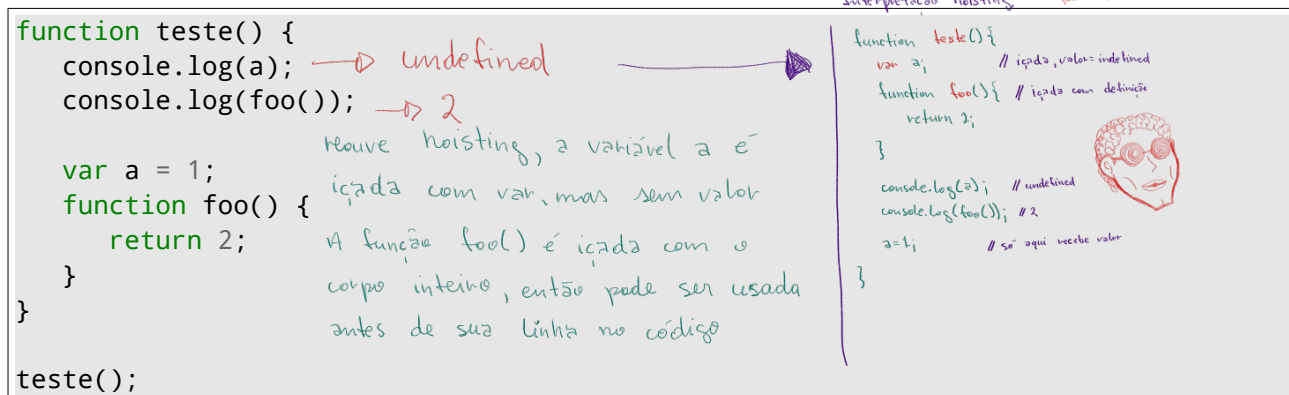 Interpretação hoisting
function teste() {
console.log(a); → undefined
console.log(foo()); → 2
var a = 1;
function foo() {
return 2;
}
}
teste();
Houve hoisting, a variável a é
içada com var, mas sem valor
A função foo() é içada com o
corpo inteiro, então pode ser usada
antes de sua linha no código
function teste() {
var a; // içada, valor = indefined
function foo() { // içada com definição
return 2;
}
console.log(a); // undefined
console.log(foo()); // 2
a=1; // só aqui recebe valor
}